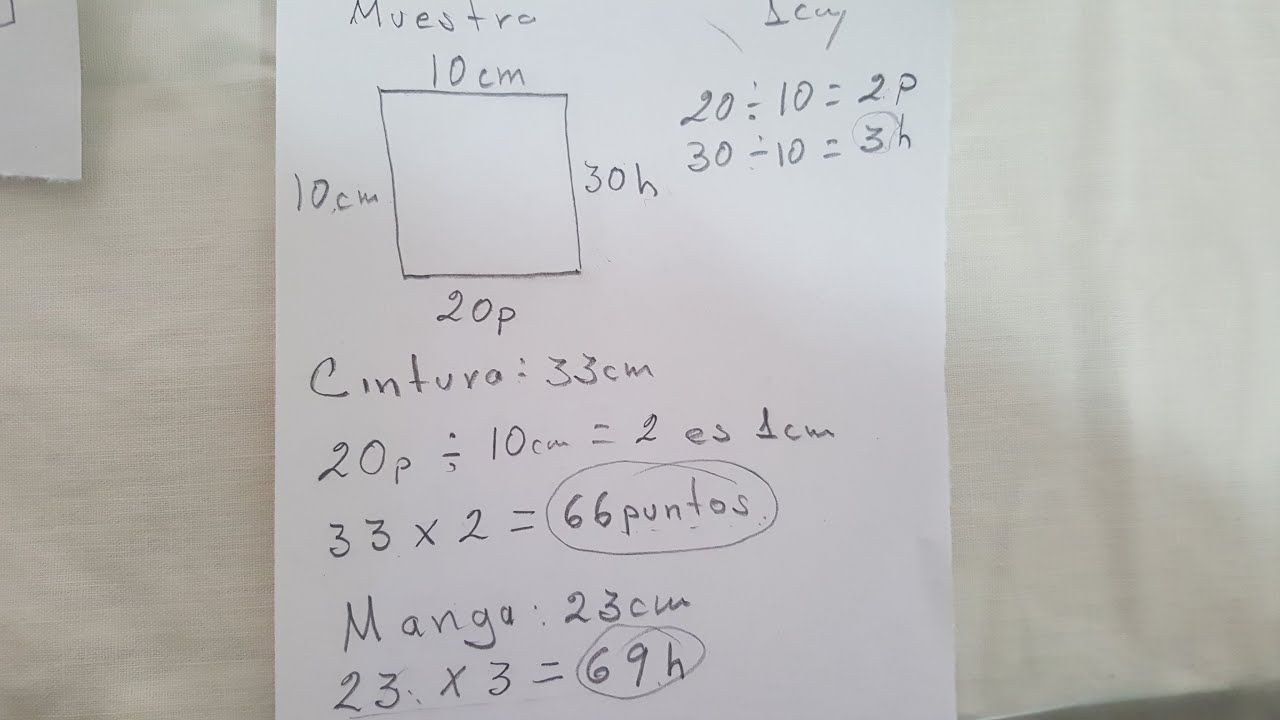 Muestra
1cm
10cm
20 ÷ 10 = 2p
30 ÷ 10 = 3h
10cm
30h
20p
Cintura: 33cm
20p ÷ 10cm = 2 es 1cm
33 x 2 = 66puntos.
Manga: 23cm
23. x 3 = 69h